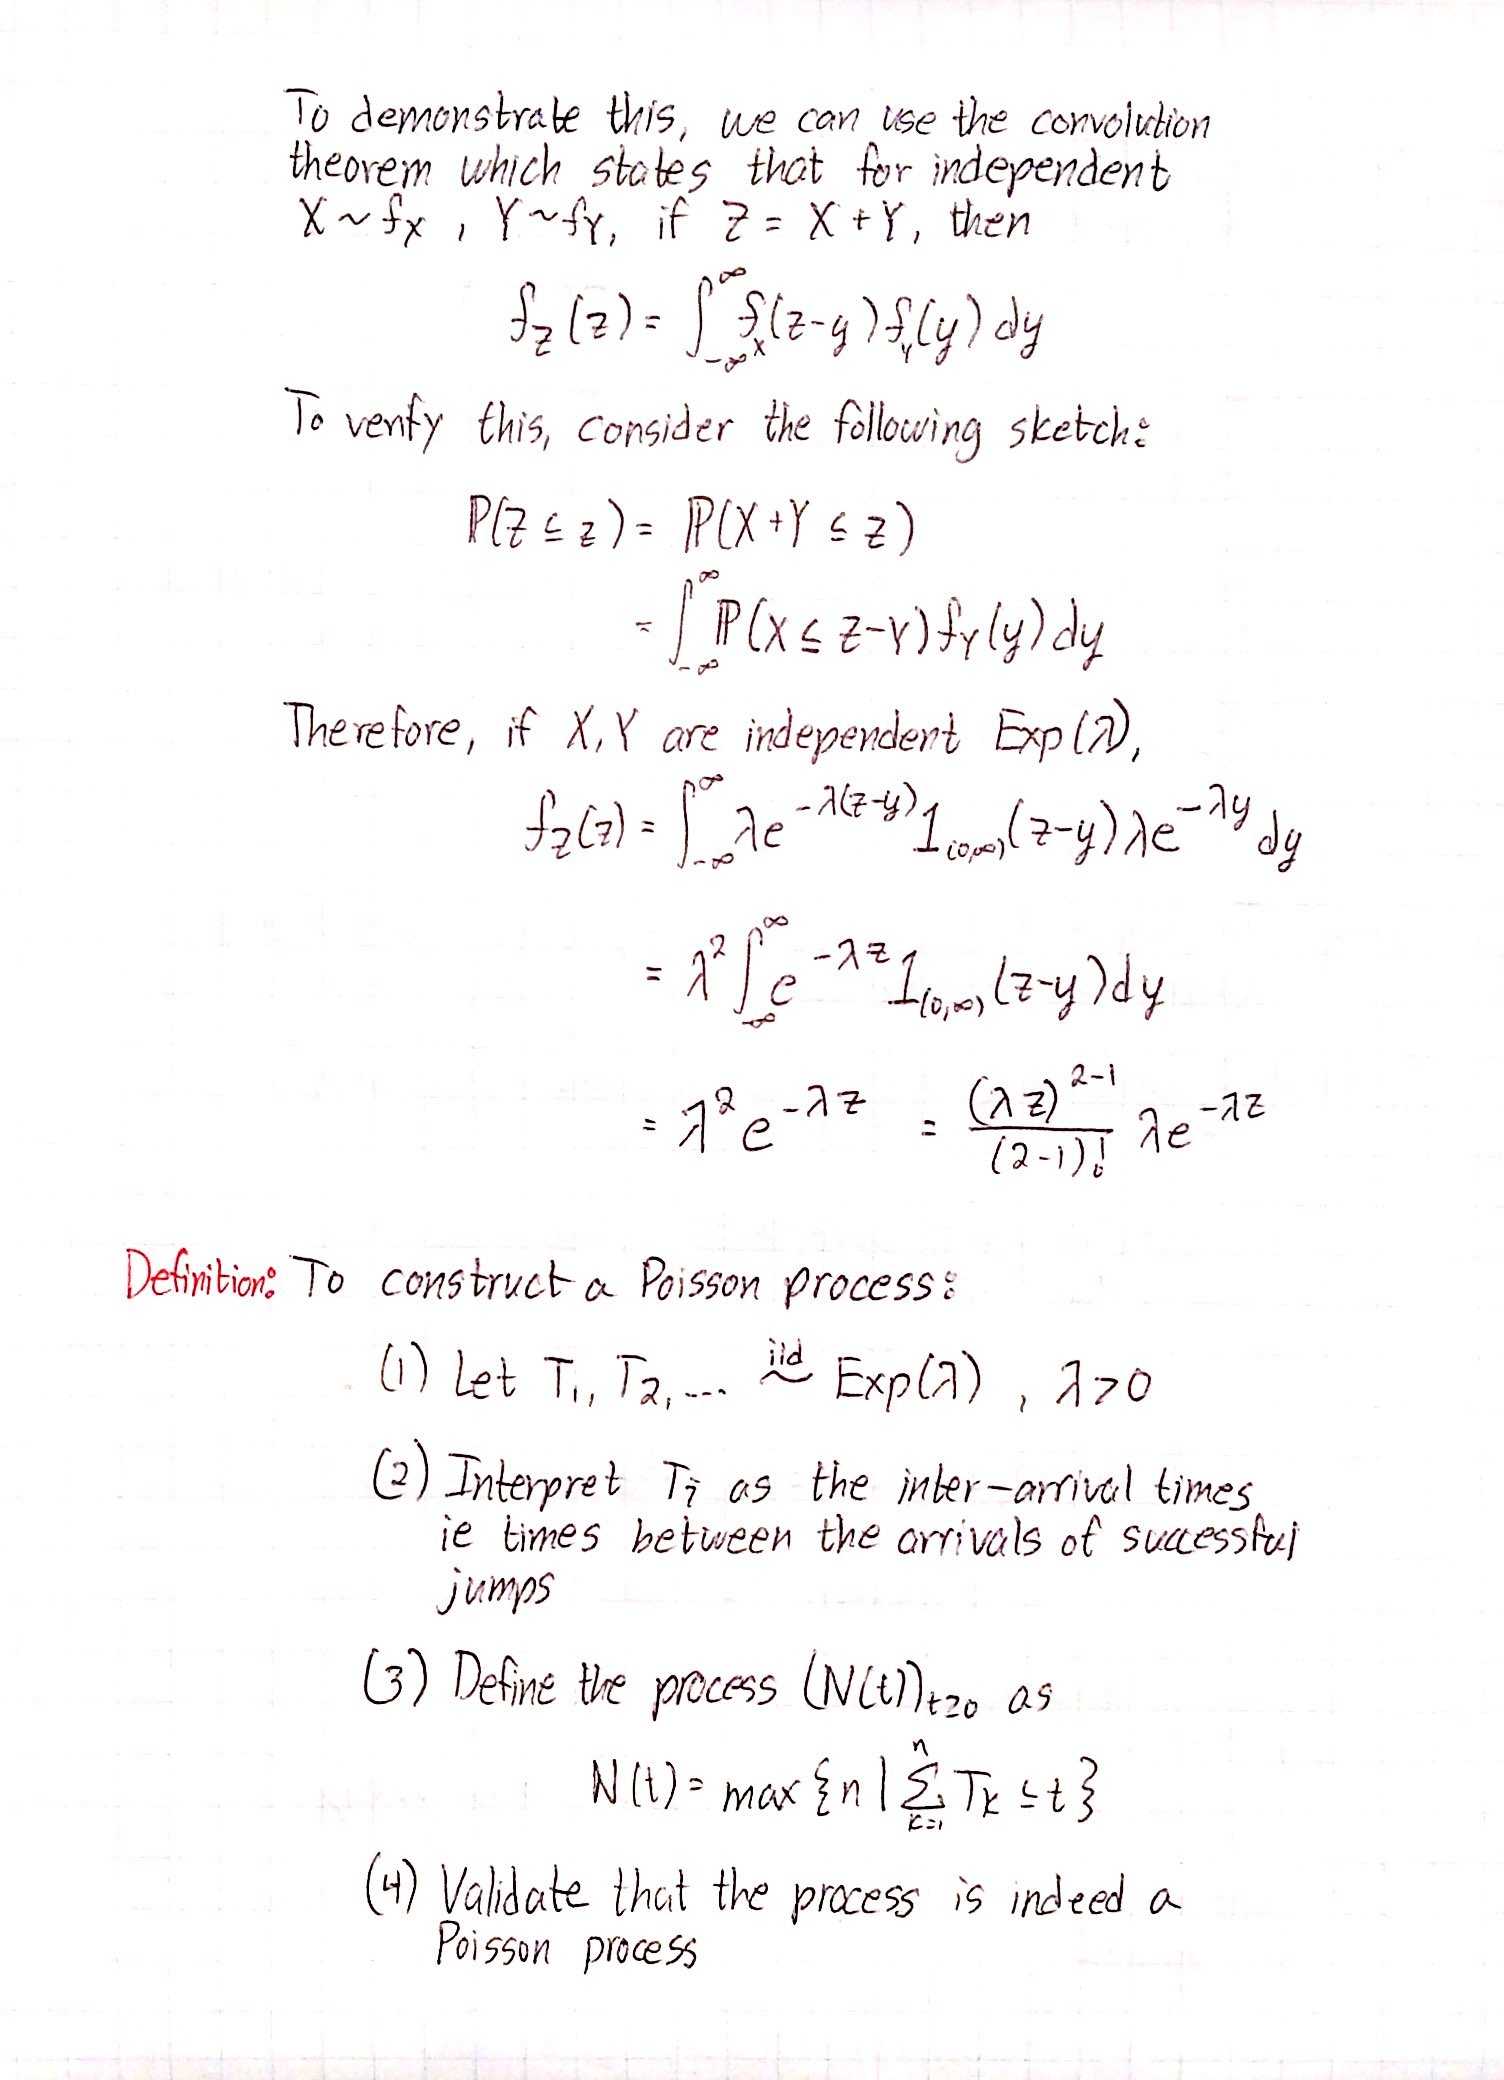 To demonstrate this, we can use the convolution
theorem which states that for independent
X ~ f_X , Y ~ f_Y, if Z = X + Y, then
f_Z(z) = ∫_{-∞}^{∞} f_X(z-y) f_Y(y) dy
To verify this, consider the following sketch:
ℙ(Z ≤ z) = ℙ(X+Y ≤ z)
= ∫_{-∞}^{∞} ℙ(X ≤ z-Y) f_Y(y) dy
Therefore, if X, Y are independent Exp(λ),
f_Z(z) = ∫_{-∞}^{∞} λe^{-λ(z-y)} 1_{(0,∞)}(z-y) λe^{-λy} dy
= λ² ∫_{-∞}^{∞} e^{-λz} 1_{(0,∞)}(z-y) dy
= λ² e^{-λz} = \frac{(λz)^{2-1}}{(2-1)!} λe^{-λz}
Definition: To construct a Poisson process:
(1) Let T₁, T₂, ... \overset{iid}{~} Exp(λ) , λ>0
(2) Interpret T_i as the inter-arrival times
ie times between the arrivals of successful
jumps
(3) Define the process (N(t))_{t≥0} as
N(t) = max {n | ∑_{k=1}^{n} T_k ≤ t}
(4) Validate that the process is indeed a
Poisson process